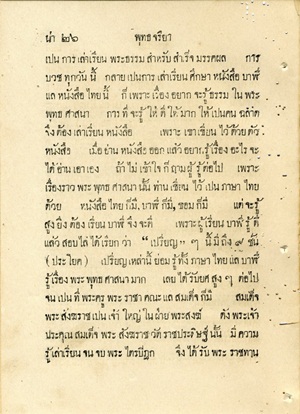 น่า ๒๖ พุทธ จริยา
เปน การ เล่าเรียน พระธรรม สำหรับ สำเร็จ มรรคผล การ
บวช ทุกวัน นี้ กลาย เปนการ เล่าเรียน ศึกษา หนังสือ บาฬี
แล หนังสือ ไทย นี้ ก็ เพราะ เรื่อง อยาก จะ รู้ ธรรม ใน พระ
พุทธ ศาสนา การ ที่ จะ รู้ ให้ ดี ให้ มาก ให้ เปนคน ฉลาด
จึง ต้อง เล่าเรียน หนังสือ เพราะ เขา เขียน ไว้ ด้วย ตัว
หนังสือ เมื่อ อ่าน หนังสือ ออก แล้ว อยาก รู้ เรื่อง อะไร จะ
ได้ อ่าน เอา เอง ถ้า ไม่ เข้า ใจ ก็ ถาม ผู้ รู้ ต่อ ไป เพราะ
เรื่องราว พระ พุทธ ศาสนา นั้น ท่าน เขียน ไว้ เปน ภาษา ไทย
ด้วย หนังสือ ไทย ก็มี, บาฬี ก็มี, ขอม ก็มี แต่ จะ รู้
สูง ยิ่ง ต้อง เรียน บาฬี จึง จะดี เพราะ ผู้ เรียน บาฬี รู้ ดี
แล้ว สอบ ไล่ ได้ เรียก ว่า “เปรียญ” ๆ นี้ มี ถึง ๙ ชั้น
(ประโยค) เปรียญ เหล่านี้ ย่อม รู้ ทั้ง ภาษา ไทย แล บาฬี
รู้ เรื่อง พระ พุทธ ศาสนา มาก เลย ได้ รับยศ สูง ๆ ต่อไป
จน เปน ที่ พระครู พระ ราชา คณะ แล สมเด็จ ก็มี สมเด็จ
พระ สังฆราช เปน เจ้า ใหญ่ ใน ฝ่าย พระสงฆ์ ดัง พระเจ้า
ประคุณ สมเด็จ พระ สังฆราช วัด ราชประดิษฐ์ นั้น มี ความ
รู้ เล่าเรียน จน จบ พระ ไตรปิฎก จึง ได้ รับ พระ ราชทาน